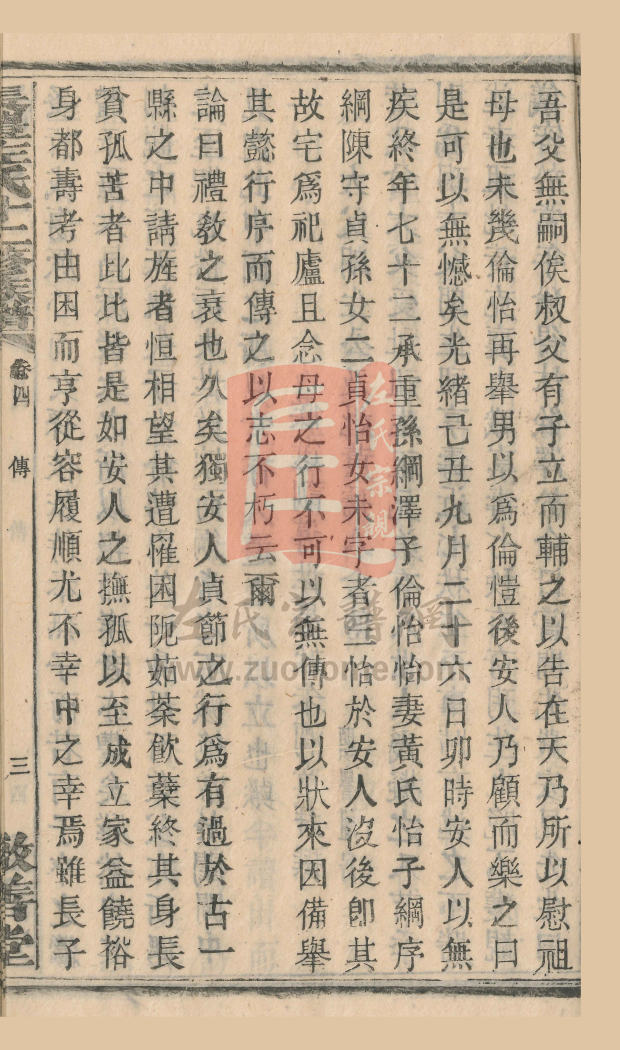 吾父無嗣俟叔父有子立而輔之以告在天乃所以慰祖
母也未幾倫怡再舉男以為倫愷後安人乃顧而樂之曰
是可以無憾矣光緒己丑九月二十六日卯時安人以無
疾終年七十二承重孫綱澤子倫怡怡妻黃氏怡子綱序
綱陳守貞孫女二貞怡女未字者三怡於安人沒後卽其
故宅為祀廬且念母之行不可以無傳也以狀來因備舉
其懿行序而傳之以志不朽云爾
論曰禮教之衰也久矣獨安人貞節之行為有過於古一
縣之中請旌者恒相望其遭罹困阨茹荼飲櫱終其身長
貧孤苦者比比皆是如安人之撫孤以至成立家益饒裕
身都壽考由困而亨從容履順尤不幸中之幸焉雖長子
左氏十二修族譜 卷四 傳 三 敬善堂
左氏宗親
左氏宗譜網
www.zuojiome.com